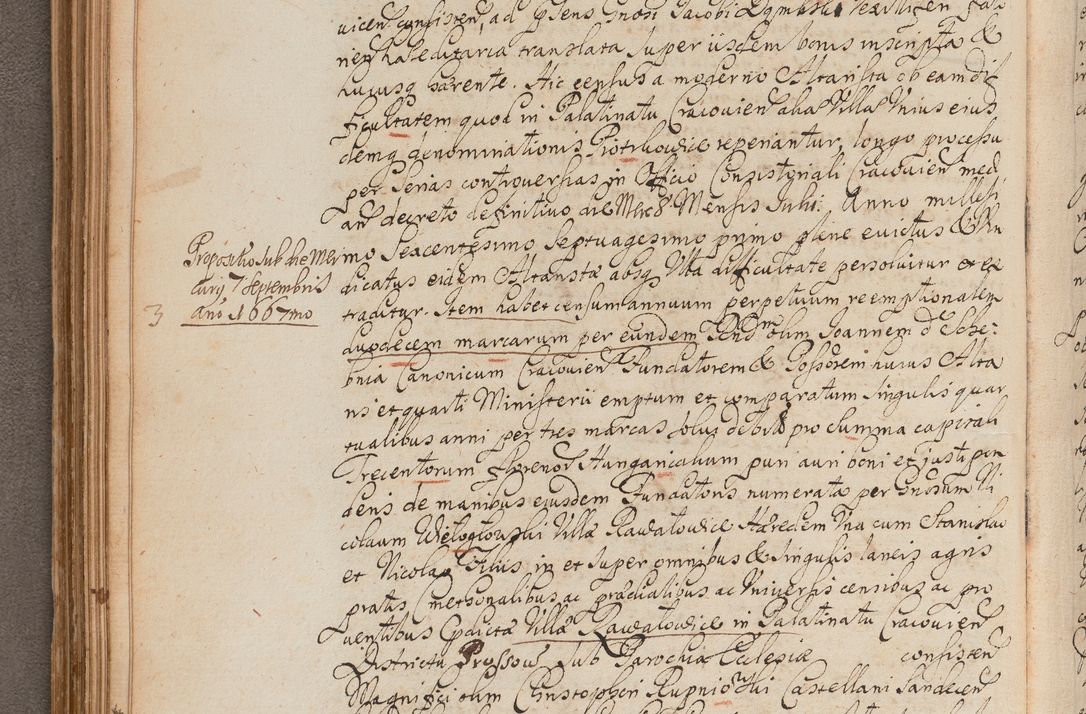 nem hæreditaria translata super iisdem bonis inscripta &
huiusq parente. Hic census a moderno Altarista ob eam dif
ficultatem quod in Palatinatu Cracovien alia Villa Unius eius
demq denominationis Piotrkovice reperiantur, longo processu
per Serias controversias in Officio Consistoriali Cracovien med
an decreto definitivo die Mensis Julii Anno millesi
mo Sexcentesimo Septuagesimo primo plene evictus & Vin
dicatus eidem Altaristæ absq Ulla difficultate persoluitur et ex
traditur. Item habet censum annuum perpetuum reemptionalem
duodecem marcarum per eundem olim Joannem de Scbe:
bnia Canonicum Cracovien Fundatorem & Possorem huius Alta
ris et quarti Ministerii emptum et comparatum singulis quar
tualibus anni per tres marcas solui debit pro summa capitali
Trecentorum florenor Hungaricalium puri auri boni et justi pon
deris de manibus eiusdem Fundatoris numerata per Gnosum Ni
colaum Wielogłowski Villæ Rawałowice Hæredem Una cum Stanislao
et Nicolao Filiis in et super omnibus & singulis laneis agris
pratis Cmethonalibus ac prædialibus ac Universis censibus ac pro
ventibus Cpdicta Villæ Rawałowice in Palatinatu Cracovien
Districtu Prossow Sub Parochia Ecclesiæ consisten
Magnifici olim Christophori Rupniowski Castellani Sandecen
Propositio sub die Mer
curij 7 Septembris
3 año 1667mo